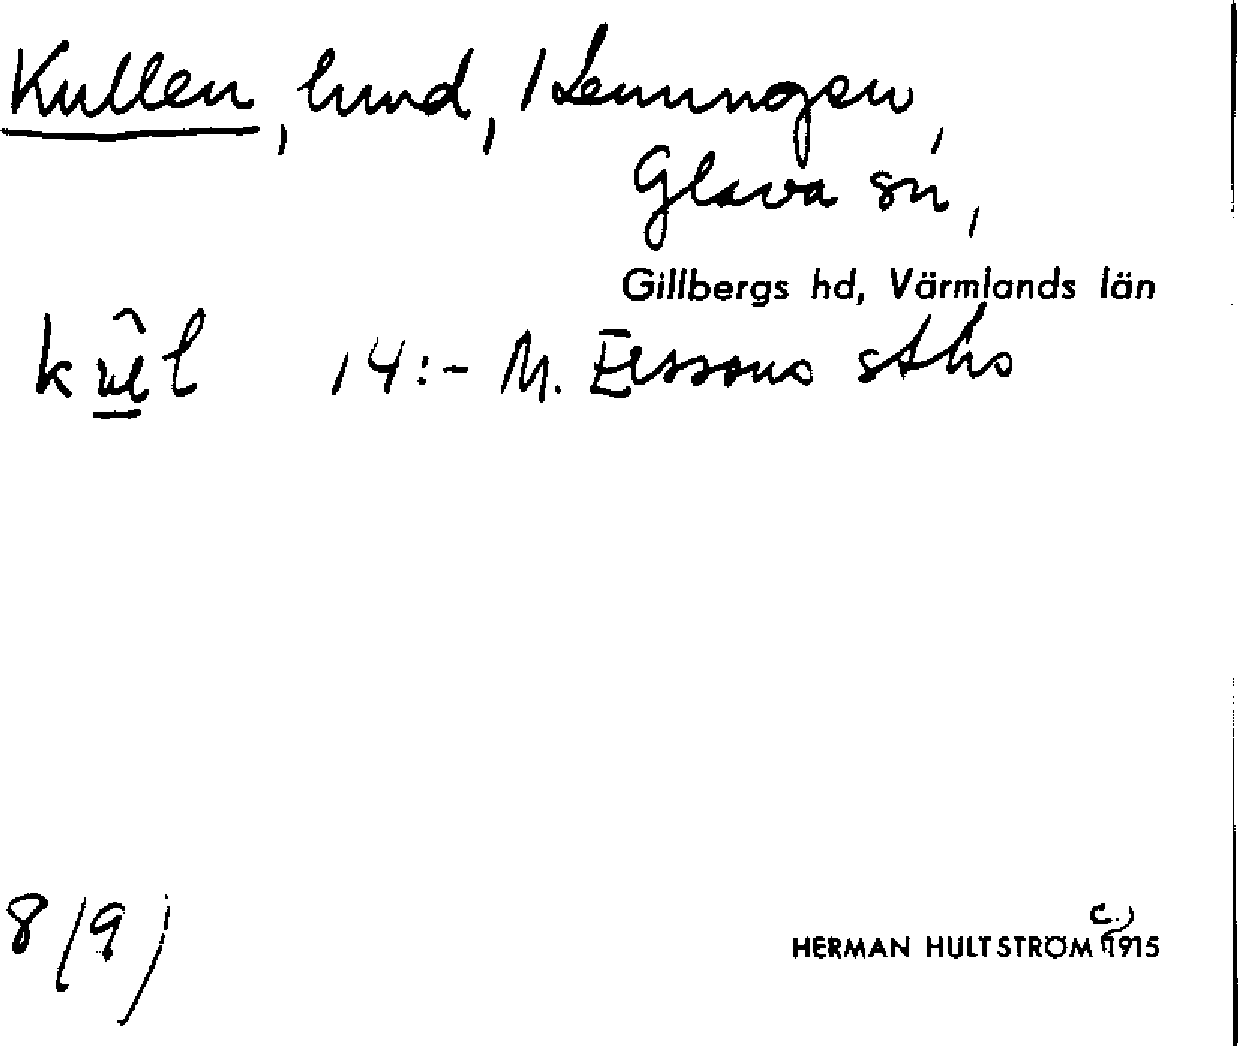 Kullen, lund, 1 Lenungen,
Glava sn,
Gillbergs hd, Värmlands län
14:- M. Elssons sthо
8 (9)
c.)
HERMAN HULTSTRÖM 1915